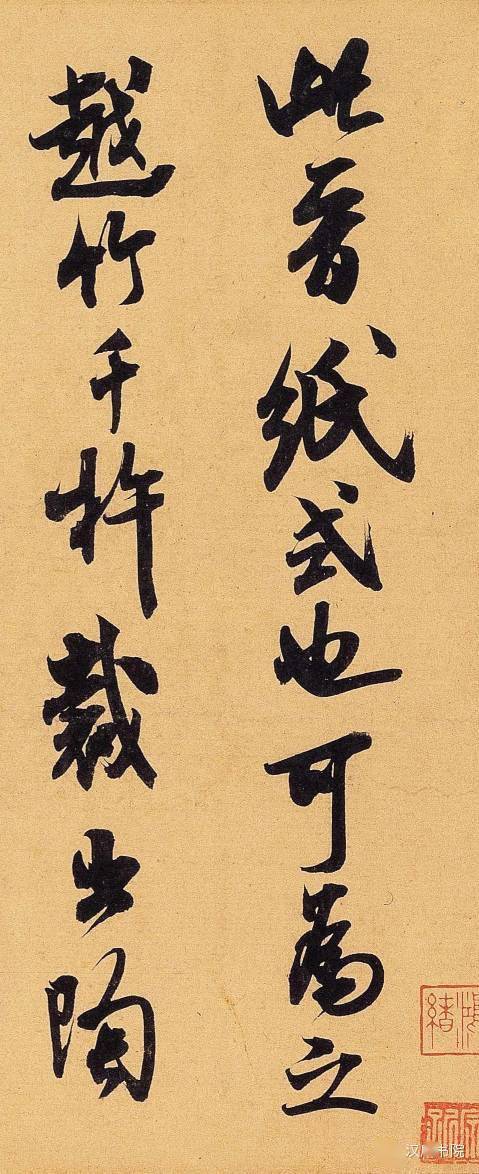 此晉紙式也可為之
越竹千杵裁出陶
汉 书院